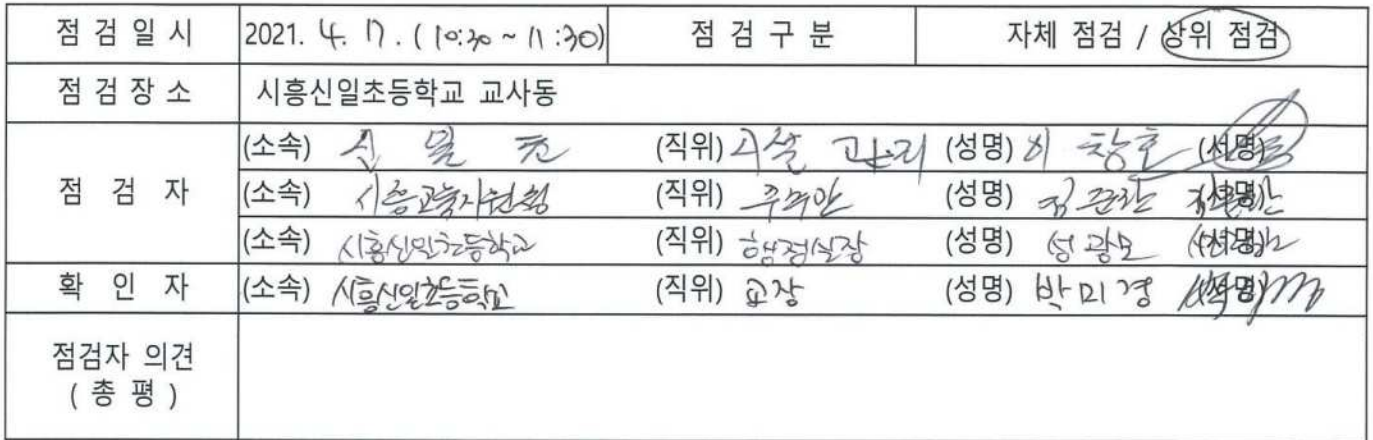 점 검 일 시 2021. 4. 17. (10:30 ~ 11:30) 점 검 구 분 자체 점검 / 상위 점검
점 검 장 소 시흥신일초등학교 교사동
점 검 자
(소속) 신 일 초 (직위) 시설 관리 (성명) 이 창호 (서명)
(소속) 시흥교육지원청 (직위) 주무관 (성명) (서명)
(소속) 시흥신일초등학교 (직위) 행정실장 (성명) 성광모 (서명)
확 인 자 (소속) 시흥신일초등학교 (직위) 교장 (성명) 박미경 (서명)
점검자 의견
( 총 평 )